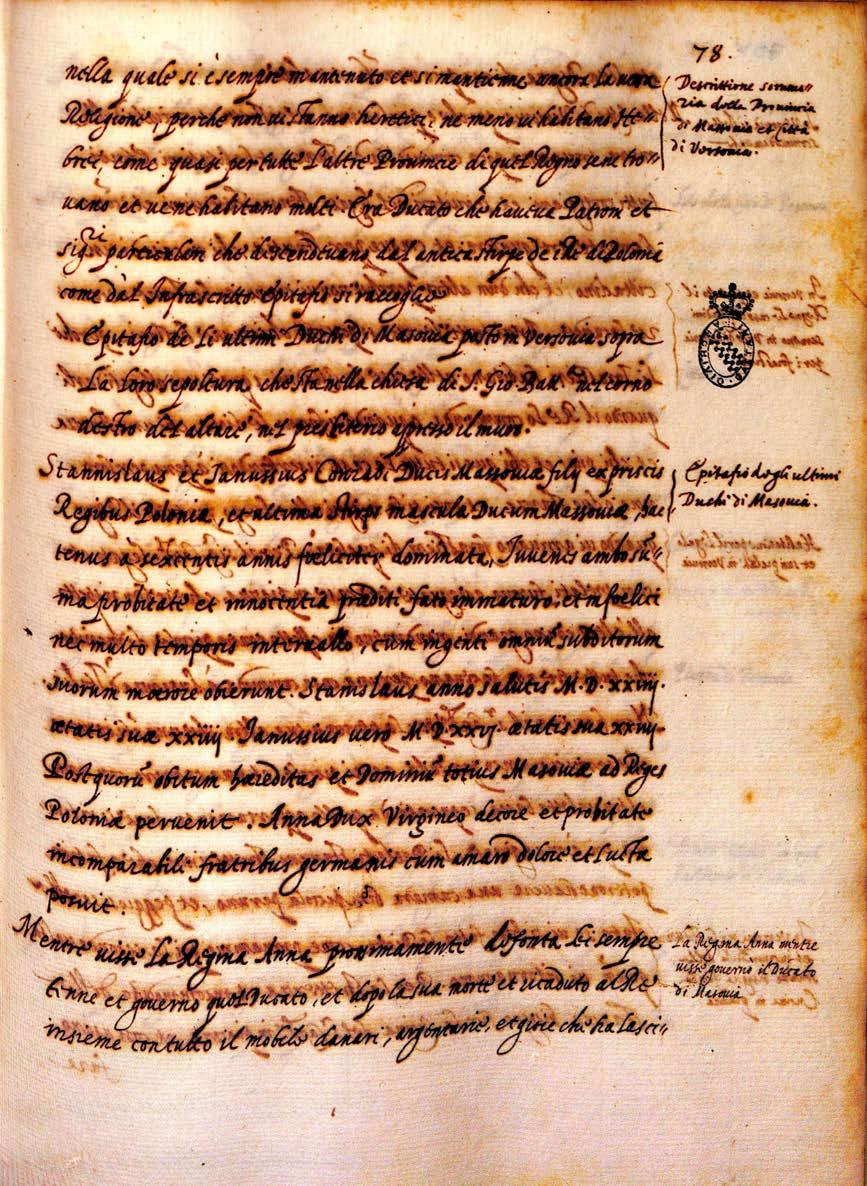 78.
nella quale si è sempre mantenuto et si mantienne ancora la uera
Religione, perche non ui stanno heretici, ne meno ui habitano He=
brei, come quasi per tutte l'altre Prouincie di quel Regno se ne tro=
uano et ue ne habitano molti. Era Ducato che haueua Patroni et
sig.ri particulari che descendeuano dal antica stirpe de i Rè di Polonia
come dal Infrascritto Epitafio si raccoglie
Epitafio de li ultimi Duchi di Masouia posto in Versouia sopra
La loro sepoltura che sta nella chiesa di S. Gio. Batt.a nel corno
destro del altare, nel presbiterio appresso il muro.
Stannislaus et Janussius Conradi Ducis Massouiæ filij ex priscis
Regibus Poloniæ, et ultima stirps mascula Ducum Massouiæ, hac
tenus a sexcentis annis fœliciter dominata, Iuuenes ambo su=
ma probitate et innocentia præditi, fato immaturo, et infoelici
nec multo temporis interuallo, cum ingenti omniũ subditorum
suorum moerore obierunt. Stanislaus anno salutis M. D. xxiiij.
ætatis suæ xxiiij Janussius uero M. D. xxvj. ætatis sua xxiiij.
Post quorũ obitum hæreditas et Dominiũ totius Masouiæ ad Reges
Poloniæ peruenit. Anna Dux Virgineo decore et probitate
incomparabili fratribus germanis cum amaro dolore et luctu
posuit.
Mentre uisse La Regina Anna prossimamente defonta lei sempre
tenne et gouerno quel Ducato, et dopo la sua morte et ricaduto al Rè
insieme con tutto il mobile danari, argentarie, et gioie che ha lasci=
Descrittione somma=
ria della Prouincia
di Massouia et Città
di Versouia.
Epitafio degli ultimi
Duchi di Masouia.
La Regina Anna mentre
uisse gouernò il Ducato
di Masouia